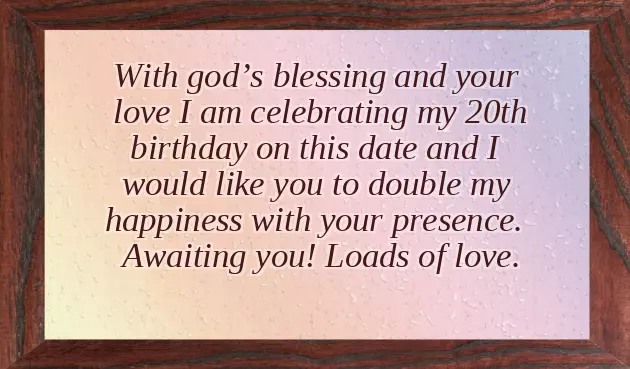 With god’s blessing and your
love I am celebrating my 20th
birthday on this date and I
would like you to double my
happiness with your presence.
Awaiting you! Loads of love.